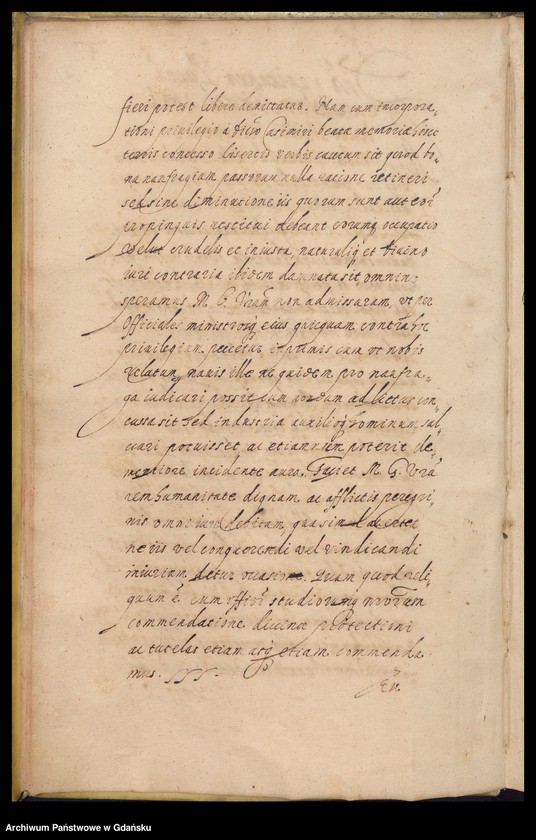 fieri potest libere demittatur. Nam cum incorpora-
tioni privilegio a divo Casimiri beatæ memoriæ
concesso disertis verbis cautum sit quod bo-
na naufragium passorum nulla ratione retineri
sed sine diminutione iis quorum sunt aut eor̄
propinquis restitui debeant eorumq; occupatio
velut crudelis et iniusta, naturaliq; et divino
iuri contraria ibidem damnata sit, omnin-
speramus M. G. Vram̄ non admissuram, ut per
Officiales ministrosq; eius quicquam contra hoc
privilegium peccetur inprimis cum ut nobis
relatum, navis illa ne quidem pro naufra-
ga iudicari possit cum nondum ad littus con-
cussa sit sed industria auxilioq; hominum sal-
vari potuisset, ac etiamnum poterit de-
incidente aura. Faciet M. G. Vrā
rem humanitate dignam ac afflictis peregri-
nis omni iure debitam, quasi
ne iis vel conquerendi vel vindicandi
iniuriam detur occasione. Quam quod reli-
quum ē cum offici studiorumq; nrorum
commendatione divinæ protectioni
ac tutelæ etiam atq; etiam commenda-
mus.
Archiwum Państwowe w Gdańsku